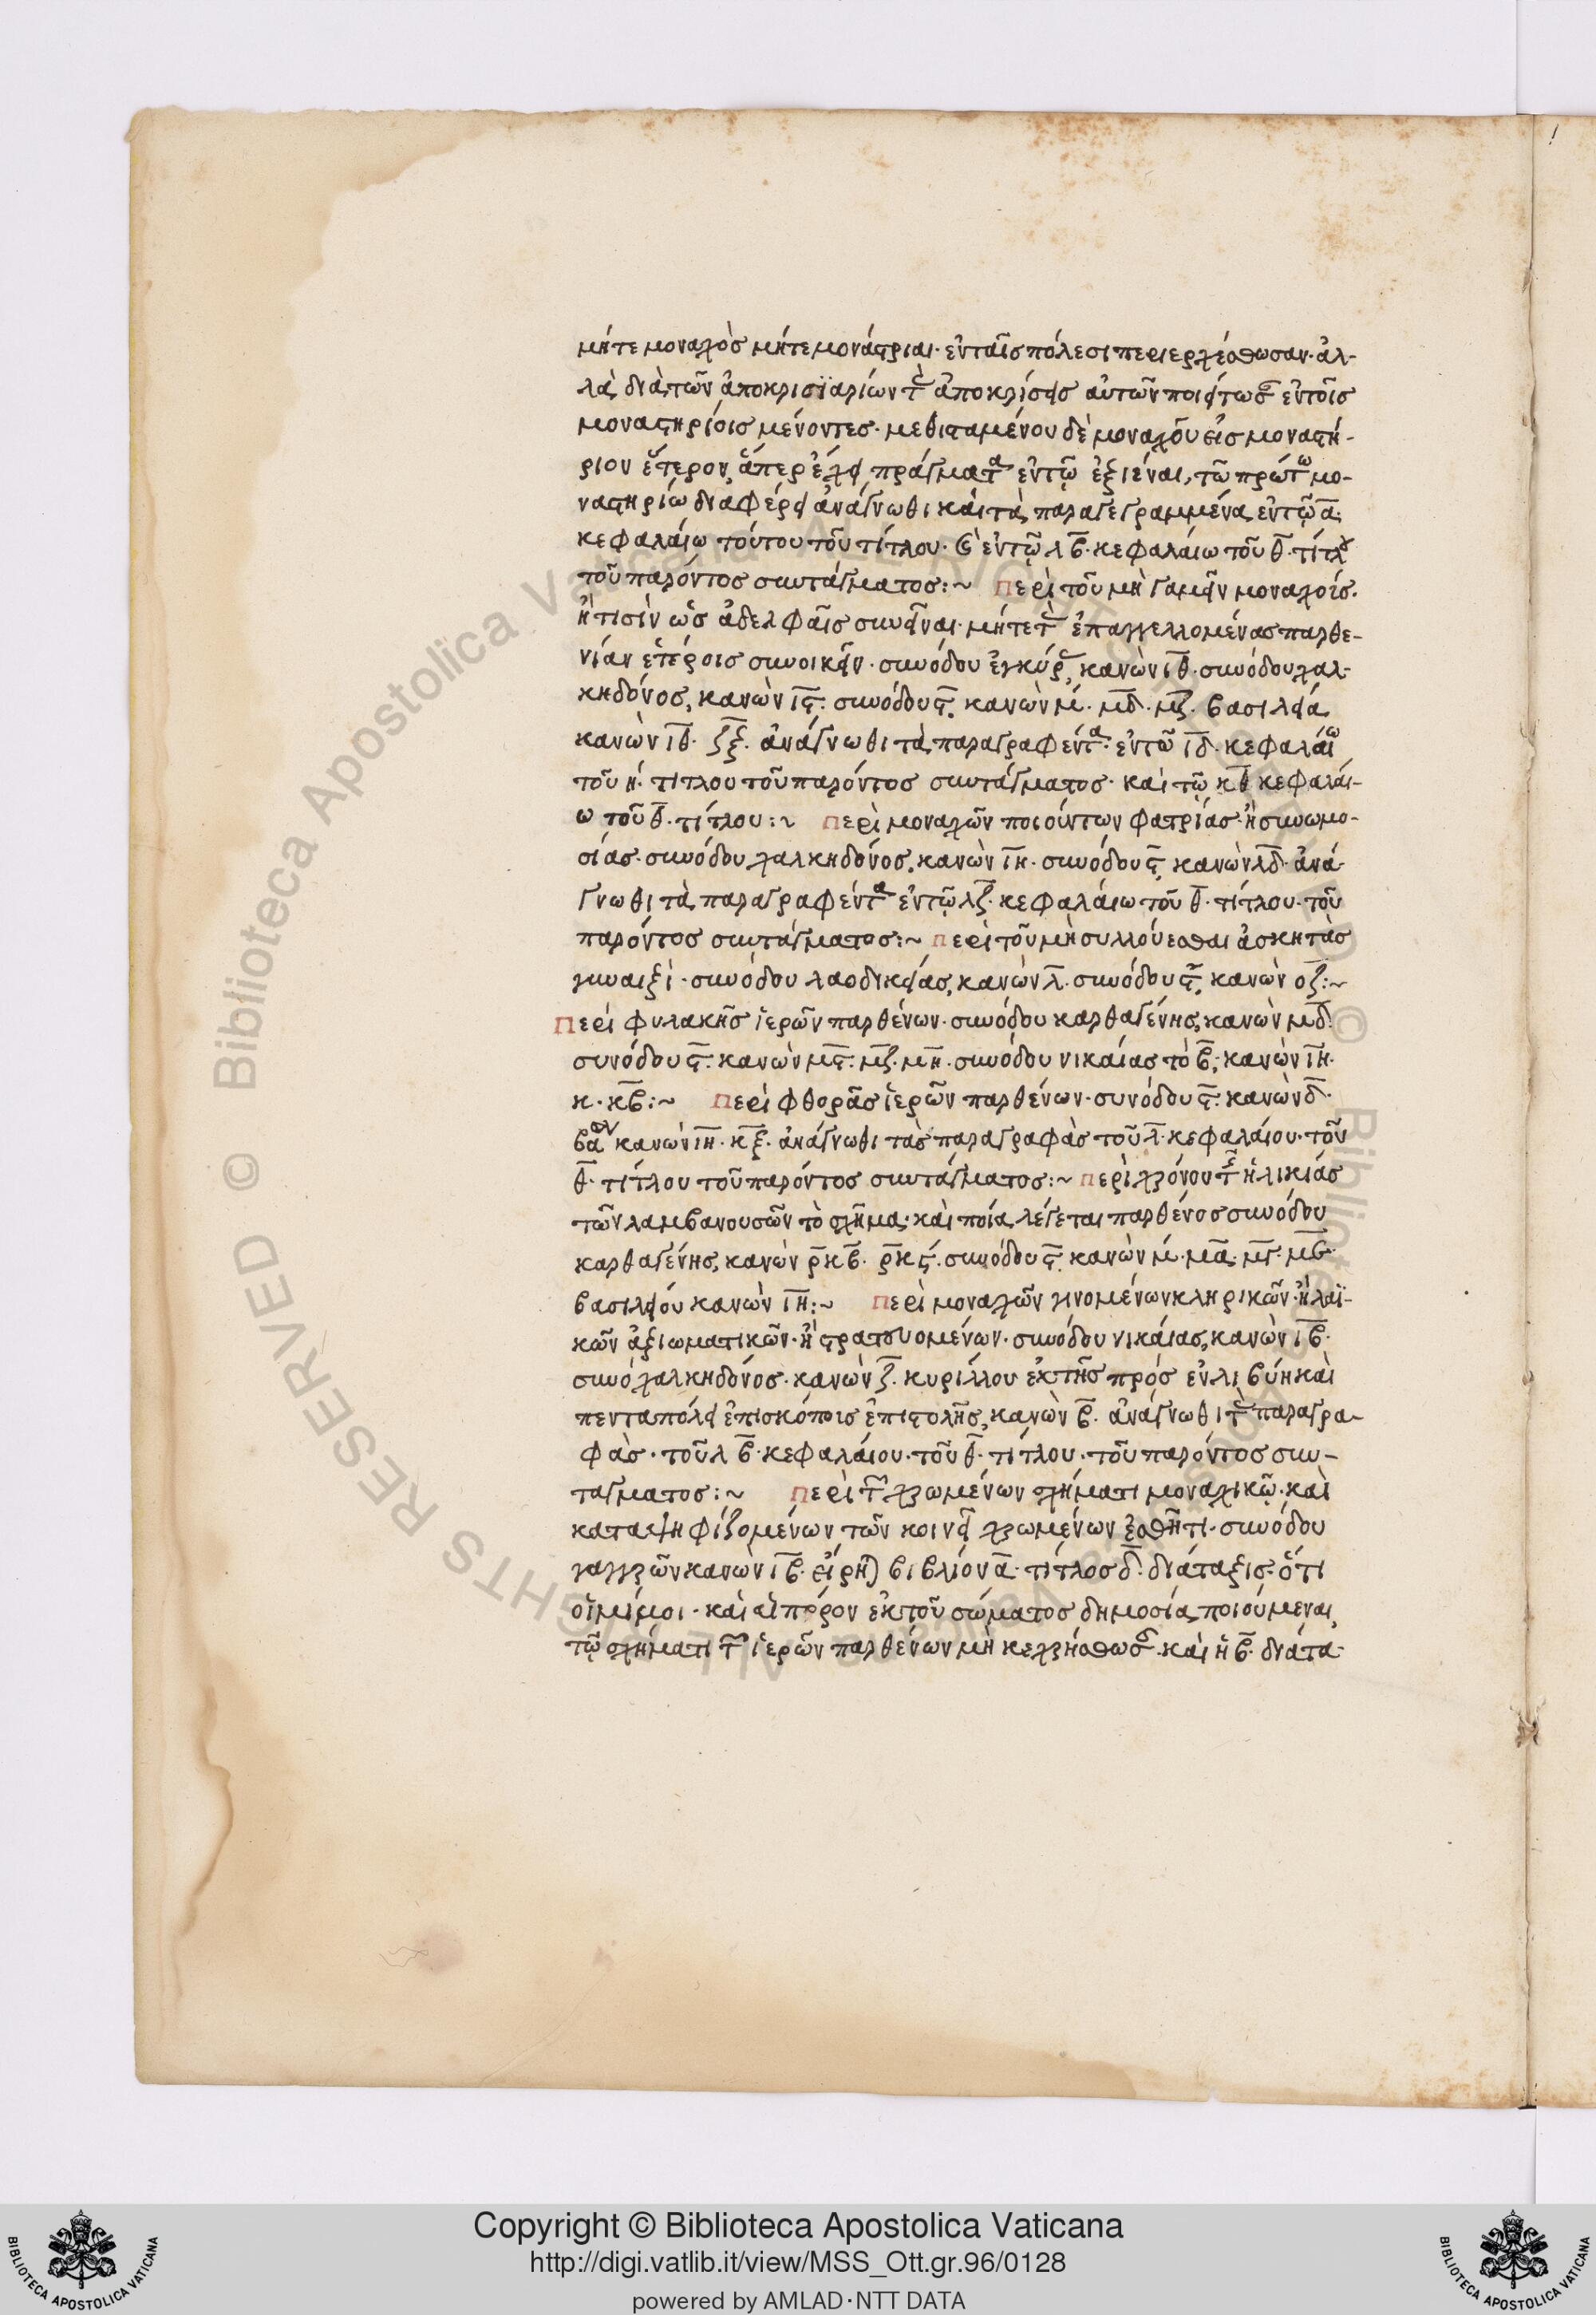 μήτε μοναχὸς μήτε μονάστριαι· ἐν ταῖς πόλεσι περιερχέσθωσαν· ἀλ-
λὰ διὰ τῶν ἀποκρισϊαρίων τὰς ἀποκρίσεις αὐτῶν ποιείτωσαν ἐν τοῖς
μοναστηρίοις μένοντες· μεθισταμένου δὲ μοναχοῦ εἰς μοναστή-
ριον ἕτερον, ἅπερ ἔχει πράγματα ἐν τῷ ἐξιέναι, τῶ πρώτω μο-
ναστηρίω διαφέρει ἀνάγνωθι καὶ τὰ παραγεγραμμένα ἐν τῷ α·
κεφαλαίω τούτου τοῦ τίτλου· καὶ ἐν τῷ λβ· κεφαλαίω τοῦ θ· τίτλου
τοῦ παρόντος συντάγματος :~ Περὶ τοῦ μὴ γαμεῖν μοναχοίς·
ἤ τισὶν ὡς ἀδελφαῖς συνεῖναι· μήτε τὰς ἐπαγγελλομένας παρθε-
νίαν ἑτέροις συνοικεῖν· συνόδου ἐγκύρας, κανὼν ιθ· συνόδου χαλ-
κηδόνος, κανὼν ις· συνόδου ς· κανὼν μ· μδ· μζ· βασιλεία
κανὼν ιθ· ζξ· ἀνάγνωθι τὰ παραγραφέντα· ἐν τῶ ιδ· κεφαλαίω
τοῦ η· τίτλου τοῦ παρόντος συντάγματος· καὶ τῷ κθ κεφαλαί-
ω τοῦ θ· τίτλου :~ Περὶ μοναχῶν ποιούντων φατρίας· ἢ συνωμο-
σίας· συνόδου χαλκηδόνος, κανὼν ιη· συνόδου ς· κανὼν λδ· ἀνά-
γνωθι τὰ παραγραφέντα ἐν τῷ λζ· κεφαλαίω τοῦ θ· τίτλου· τοῦ
παρόντος συντάγματος :~ Περὶ τοῦ μὴ συλλούεσθαι ἀσκητὰς
γυναιξὶ· συνόδου λαοδικείας, κανὼν λ· συνόδου ς· κανὼν οζ :~
Περὶ φυλακῆς ἱερῶν παρθένων· συνόδου καρθαγένης, κανὼν μδ·
συνόδου ς· κανὼν μς· μζ· μη· συνόδου νικαίας τὸ β· κανὼν ιη·
κ· κβ :~ Περὶ φθορᾶς ἱερῶν παρθένων· συνόδου ς· κανὼν δ·
βα κανὼν ιη· κ ξ· ἀνάγνωθι τὰς παραγραφὰς τοῦ λ· κεφαλαίου· τοῦ
θ· τίτλου τοῦ παρόντος συντάγματος :~ Περὶ χρόνου τῆς ἡλικιάς
τῶν λαμβανουσῶν τὸ σχῆμα· καὶ ποία λέγεται παρθένος συνόδου
καρθαγένης, κανὼν ρκβ· ρκς· συνόδου ς· κανὼν μ· μα· μγ· με·
βασιλείου κανὼν ιη :~ Περὶ μοναχῶν γινομένων κληρικῶν· ἢ λαϊ-
κῶν ἀξιωματικῶν· ἢ στρατευομένων· συνόδου νικαίας, κανὼν ιβ·
συνό χαλκηδόνος· κανὼν ζ· κυρίλλου ἐκ τῆς πρὸς ἐν λιβύη καὶ
πενταπόλει ἐπισκόποις ἐπιστολῆς, κανὼν β· ἀνάγνωθι τὰς παραγρα-
φὰς· τοῦ λβ· κεφαλαίου· τοῦ θ· τίτλου· τοῦ παρόντος συν-
τάγματος :~ Περὶ τῶν χρωμένων σχήματι μοναχικῷ· καὶ
καταψηφιζομένων τῶν κοινῇ χρωμένων ἐσθῆτι· συνόδου
γαγγρῶν κανὼν ιβ· βιβλίον α· τίτλος δ· διάταξις· ὅτι
οἱ μίμοι· καὶ αἱ πόρον ἐκ τοῦ σώματος δημοσία ποιούμεναι
τῷ σχήματι τῶν ἱερῶν παρθένων μὴ κεχρήσθωσαν· καὶ ἡ β· διάτα-
Copyright © Biblioteca Apostolica Vaticana
http://digi.vatlib.it/view/MSS_Ott.gr.96/0128
powered by AMLAD·NTT DATA